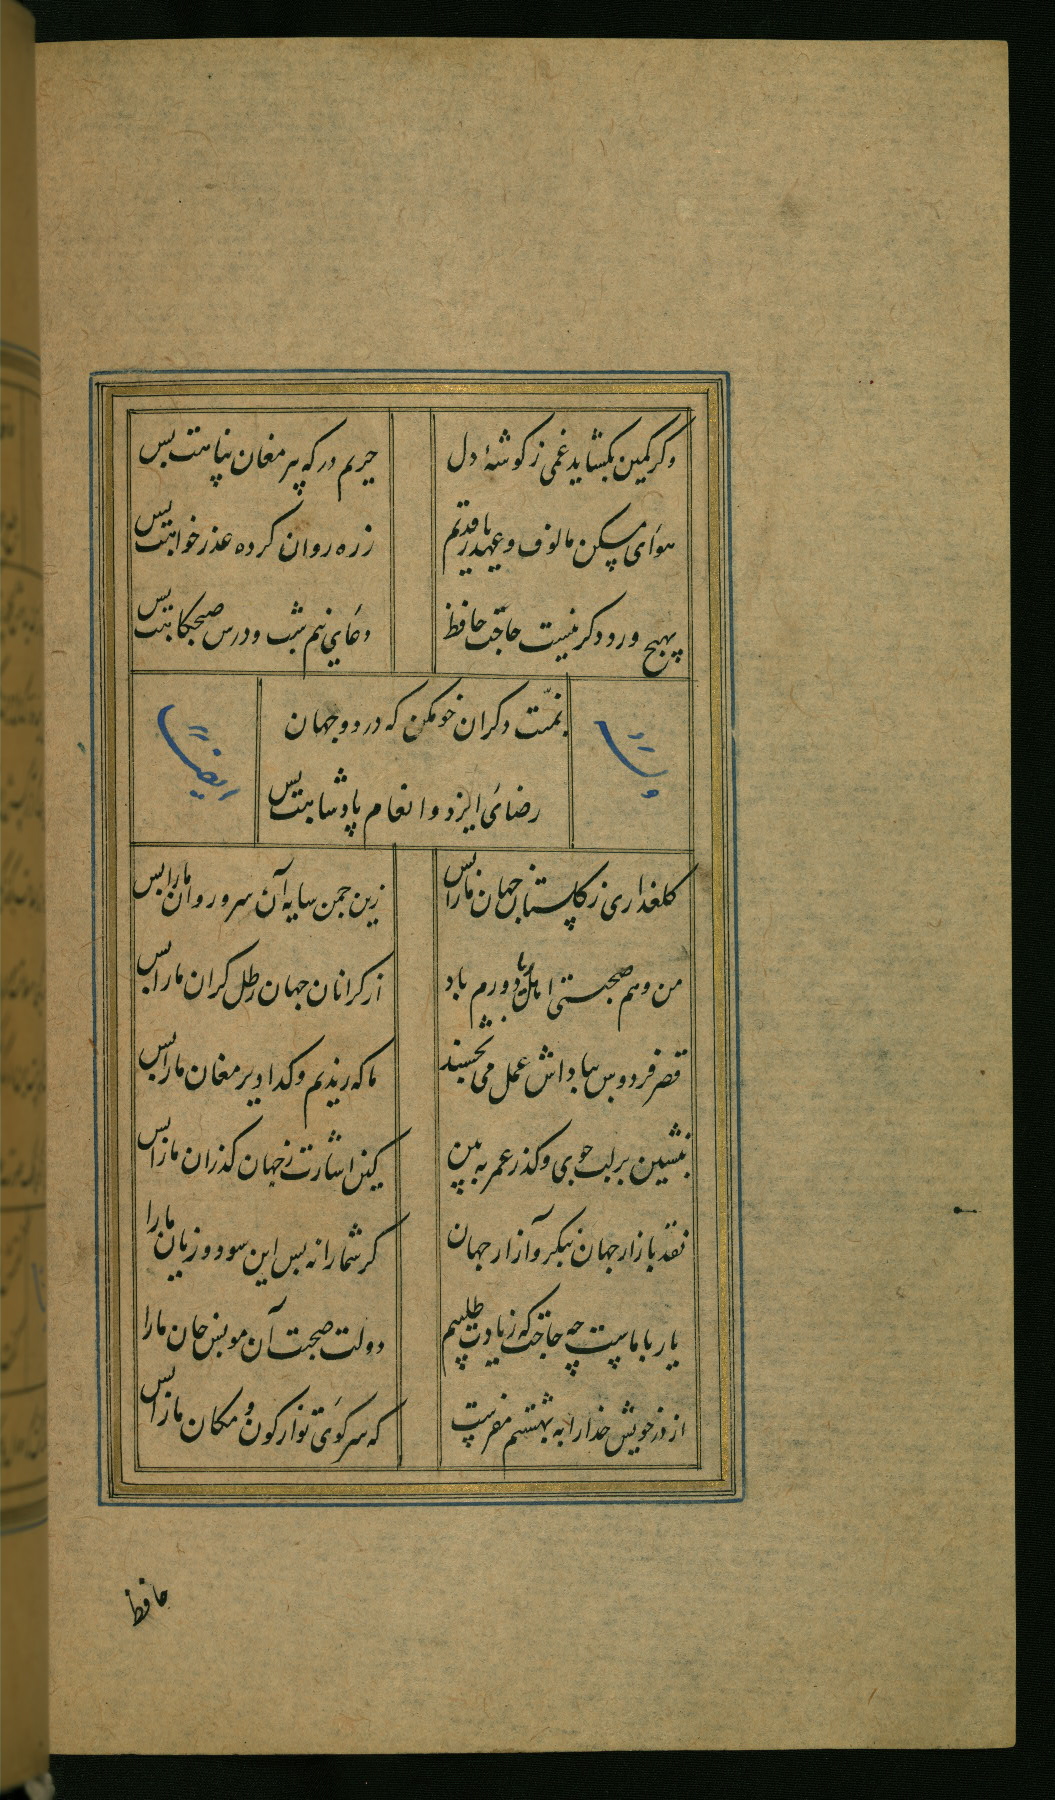 وکر کمین بکشاید غمی ز کوشهٔ دل
حریم درکه پیر مغان پناهت بس
هوای مسکن مالوف و عهد یار قدیم
ز ره روان کرده عذر خواهت بس
بهیچ ورد دکر نیست حاجت حافظ
دعای نیم شب و درس صبحکاهت بس
بمنّت دکران خو مکن که در دو جهان
رضای ایزد و انعام پادشاهت بس
وله
ایضا
کلعذاری ز کلستان جهان ما را بس
زین چمن سایه آن سرو روان ما را بس
من و هم صحبتی اهل ریا دورم باد
از کرانان جهان رطل کران ما را بس
قصر فردوس بپاداش عمل می بخشند
ما که رندیم و کدا دیر مغان ما را بس
بنشین بر لب جوی و کذر عمر به بین
کین اشارت ز جهان کذران ما را بس
نقد بازار جهان بنکر و آزار جهان
کر شما را نه بس این سود و زیان ما را
یار با ماست چه حاجت که زیادت طلبیم
دولت صحبت آن مونس جان ما را
از در خویش خدا را به بهشتم مفرست
که سر کوی تو از کون و مکان ما را بس
حافظ